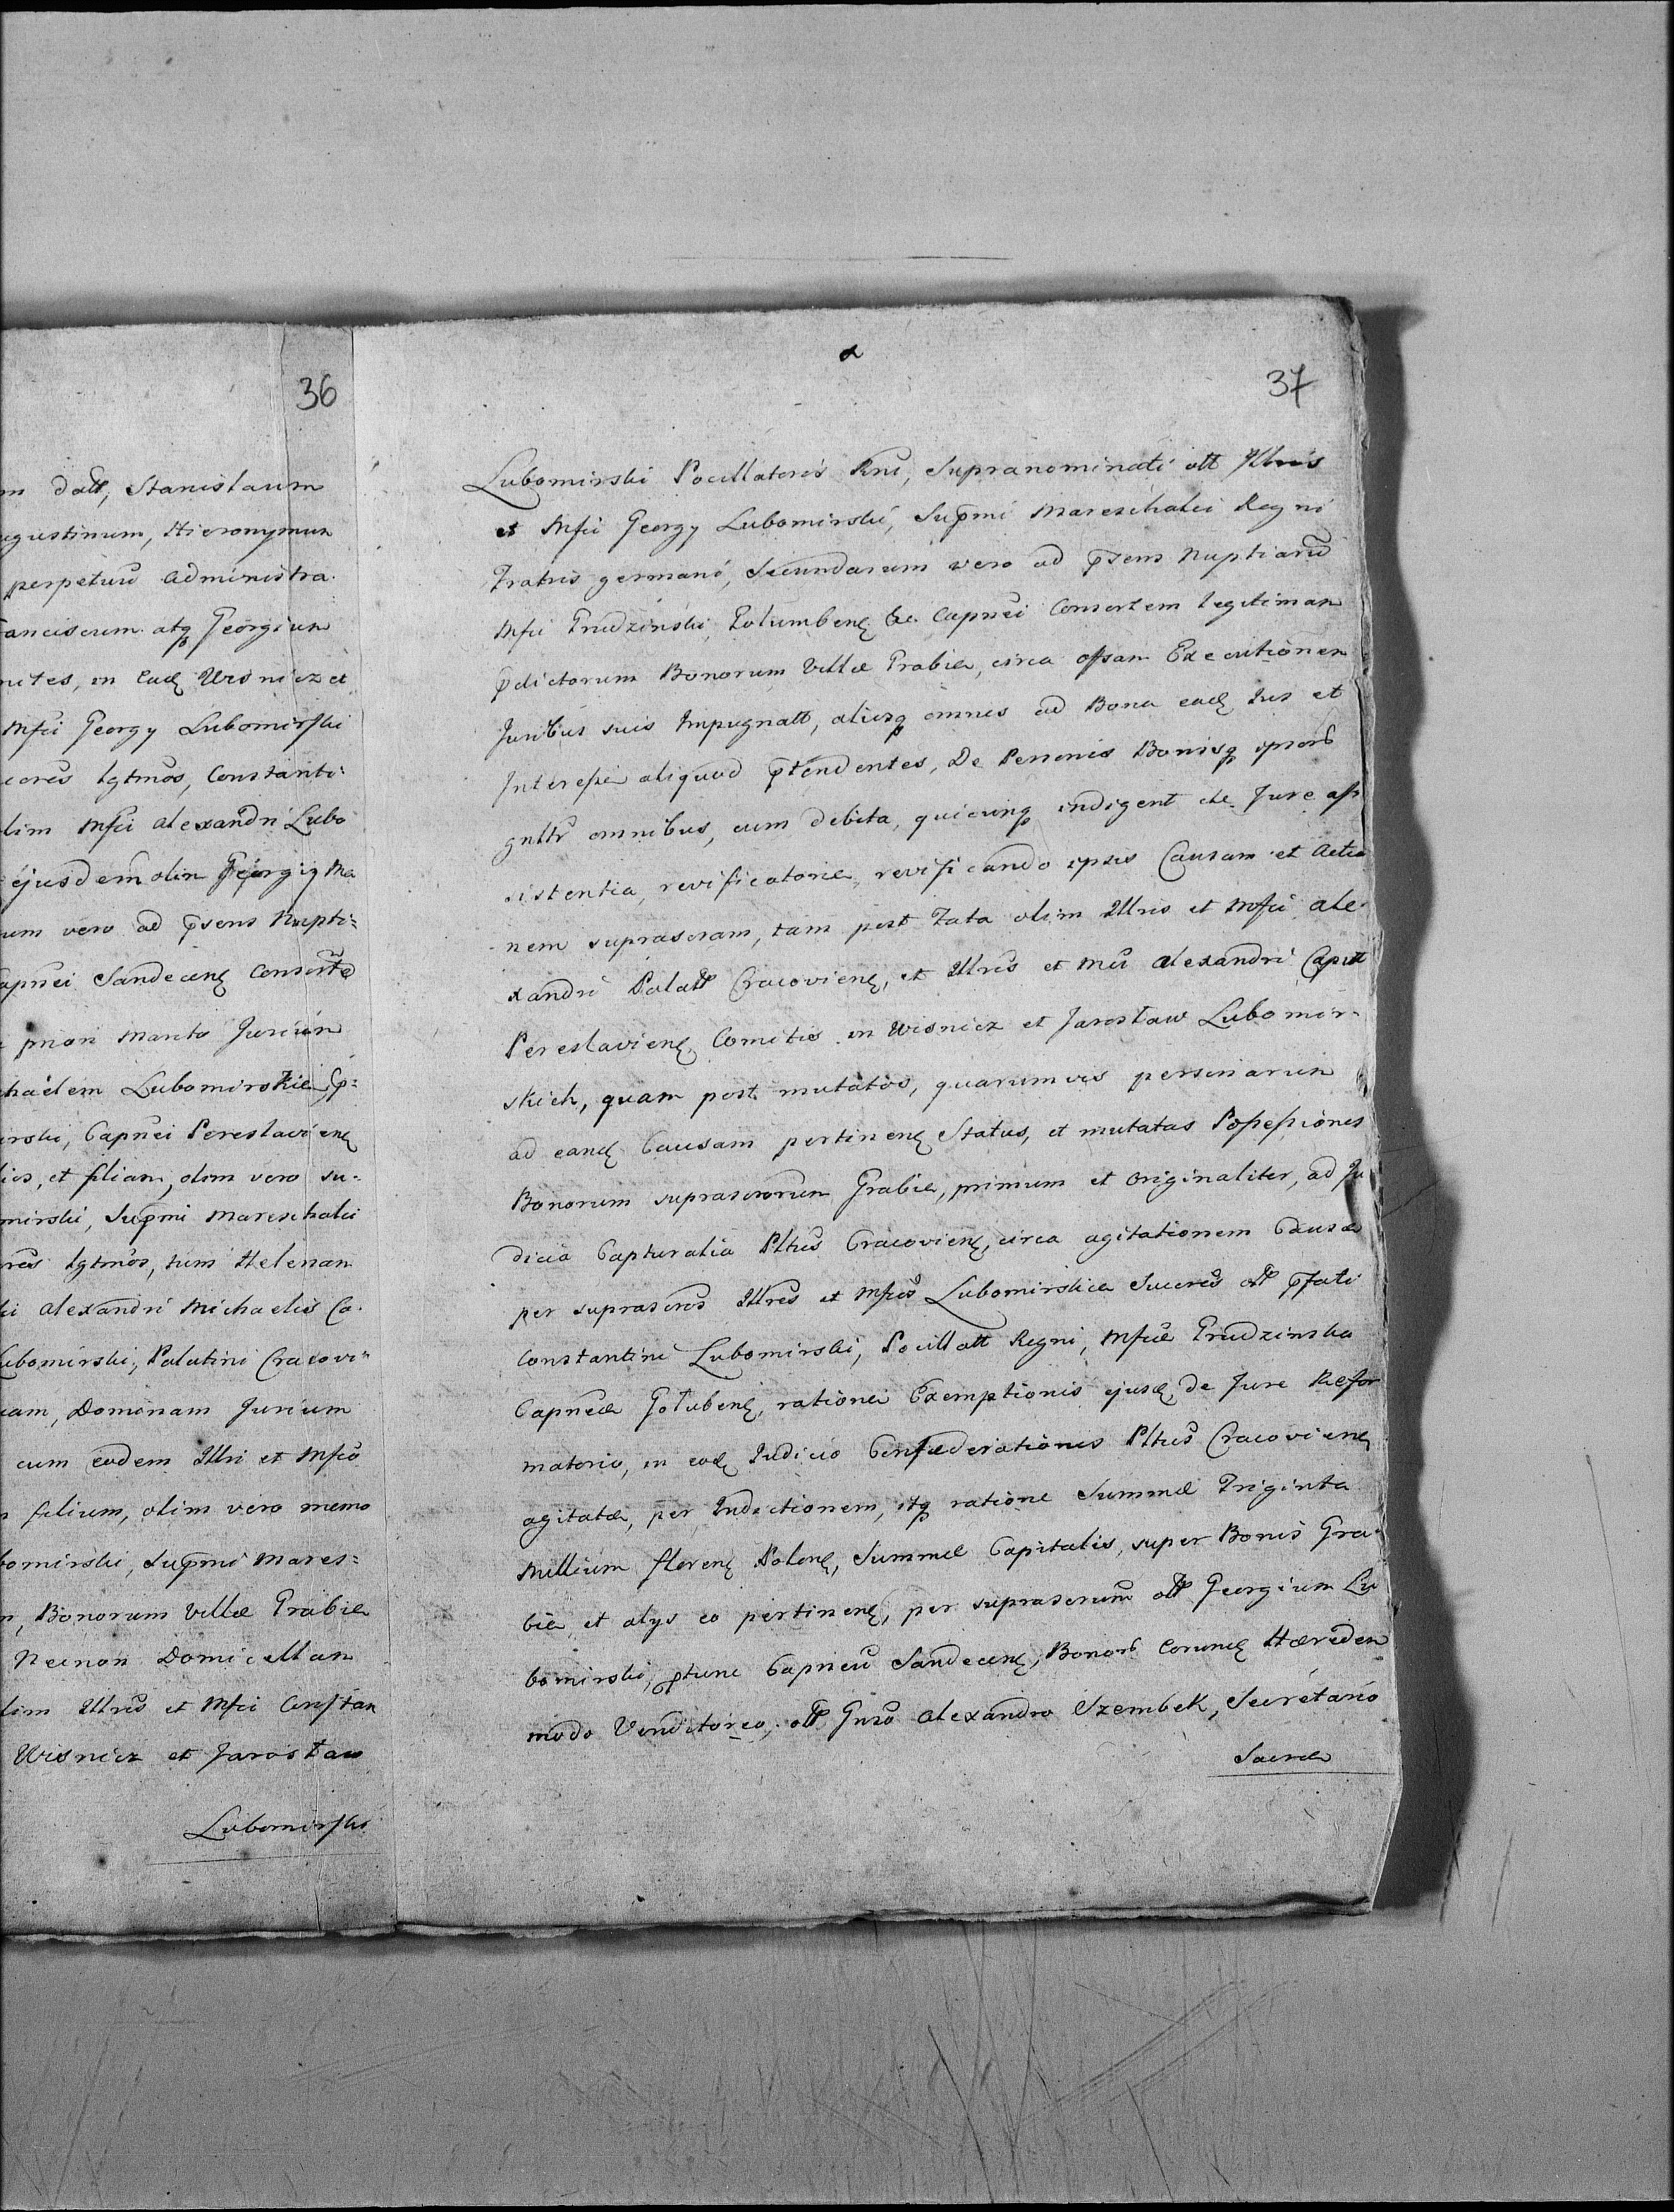 36
m datt, Stanislaum
ugustinum, Hieronymum
perpetuũ administra-
anciscum atq Georgium
mites, in Eadꝫ Wisnicz et
Mfci Georgy Lubomirski
cores lgtmos, Constanti-
lim Mfci Alexandri Lubo
ejusdem olim Georgij Ma
um vero ad p̃sens Nupti=
apnei Sandecenꝫ Consorte
priori Marito Jurium
haelem Lubomirskie
irski, Capnei Pereslavienꝫ
lios, et filiam, olim vero su-
mirski, Sup̃mi Mareschalci
res lgtmos, tum Helenam
ki Alexandri Michaelis Ca-
Lubomirski, Palatini Cracovi=
iam, Dominam Jurium
cum eodem Illri et Mfco
n filium, olim vero memo
bomirski, Sup̃mi Mares=
n, Bonorum Villæ Grabie
Necnon Domicellam
lim Illris et Mfci Constan
Wisnicz et Jarosław
Lubomirski
37
Lubomirski Pocillatoris Rni, Supranominati ott Illris
et Mfci Georgy Lubomirski, Sup̃mi Mareschalci Regni
Fratris germani, Secundarum vero ad p̃sens Nuptiarũ
Mfci Grudzinski, Golumbenꝫ &c. Capnei Consortem legitimam
p̃dictorum Bonorum Villæ Grabie, circa offsam Executionem
Juribus suis Impugnatt, aliosq omnes ad Bona eadꝫ Jus et
Interesse aliquod p̃tendentes, De Personis Bonisq ipsorũ
gnlltr omnibus, cum debita, quicunq indigent de Jure as-
sistentia, revificatorie, revificando ipsis Causam et Actio
nem suprascram, tam post Fata olim Illris et Mfci Ale-
xandri Palatt Cracovienꝫ, et Illris et Mci Alexandri Capitt
Pereslavienꝫ, Comitis in Wisnicz et Jarosław Lubomir-
skich, quam post mutatos, quarumvis personarum
ad eandꝫ Causam pertinenꝫ Status, et mutatas Possessiones
Bonorum suprascrorum Grabie, primum et Originaliter, ad Ju
dicia Capturalia Pltus Cracovienꝫ, circa agitationem Causæ
per suprascros Illres et Mfcos Lubomirskie Succres ott p̃fati
Constantini Lubomirski, Pocillatt Regni, Mfcæ Grudzinska
Capneæ Gołubenꝫ, ratione Exemptionis ejusdꝫ de Jure Refor
matorio, in eodꝫ Judicio Confæderationis Pltus Cracovienꝫ
agitatæ, per Inductionem, itq ratione Summæ Triginta
Millium florenꝫ Polonꝫ, Summæ Capitalis, super Bonis Gra-
bie, et alys eo pertinenꝫ, per suprascrum ott Georgium Lu
bomirski, p̃tunc Capneũ Sandecenꝫ, Bonorũ eorundꝫ Hæredem
modo Venditoreo, ott Gnso Alexandro Szembek, Secretario
Sacræ